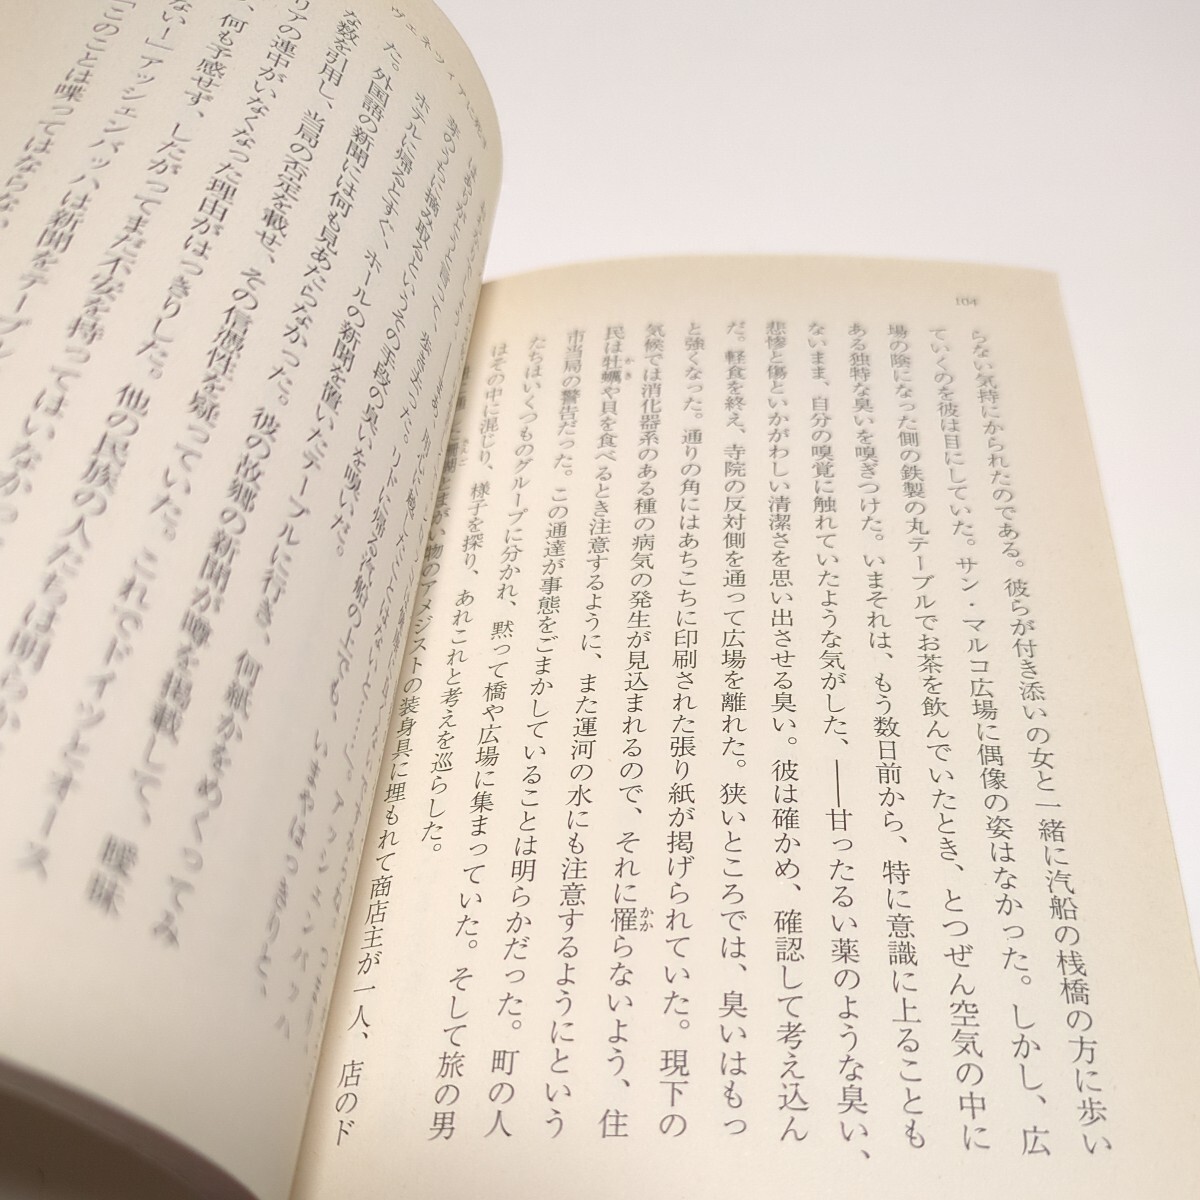 104
らない気持にかられたのである。彼らが付き添いの女と一緒に汽船の桟橋の方に歩い
ていくのを彼は目にしていた。サン・マルコ広場に偶像の姿はなかった。しかし、広
場の陰になった側の鉄製の丸テーブルでお茶を飲んでいたとき、とつぜん空気の中に
ある独特な臭いを嗅ぎつけた。いまそれは、もう数日前から、特に意識に上ることも
ないまま、自分の嗅覚に触れていたような気がした、――甘ったるい薬のような臭い、
悲惨と傷といかがわしい清潔さを思い出させる臭い。彼は確かめ、確認して考え込ん
だ。軽食を終え、寺院の反対側を通って広場を離れた。狭いところでは、臭いはもっ
と強くなった。通りの角にはあちこちに印刷された張り紙が掲げられていた。現下の
気候では消化器系のある種の病気の発生が見込まれるので、それに罹らないよう、住
民は牡蠣や貝を食べるとき注意するように、また運河の水にも注意するようにという
市当局の警告だった。この通達が事態をごまかしていることは明らかだった。町の人
たちはいくつものグループに分かれ、黙って橋や広場に集まっていた。そして旅の男
はその中に混じり、様子を探り、あれこれと考えを巡らした。
まがい物のアメジストの装身具に埋もれて商店主が一人、店のド
ヴェネツィアに死す
芽のうちに摘み取るというその手段の臭いを嗅いだ。
ホテルに帰るとすぐ、ホールの新聞を置いたテーブルに行き、何紙かをめくってみ
た。外国語の新聞には何も見あたらなかった。彼の故郷の新聞が噂を掲載して、曖昧
な数を引用し、当局の否定を載せ、その信憑性を疑っていた。これでドイツとオース
リアの連中がいなくなった理由がはっきりした。他の民族の人たちは明らか
何も予感せず、したがってまだ不安を持ってはいなかっ
ない！」アッシェンバッハは新聞をテーブル
「このことは喋ってはならない